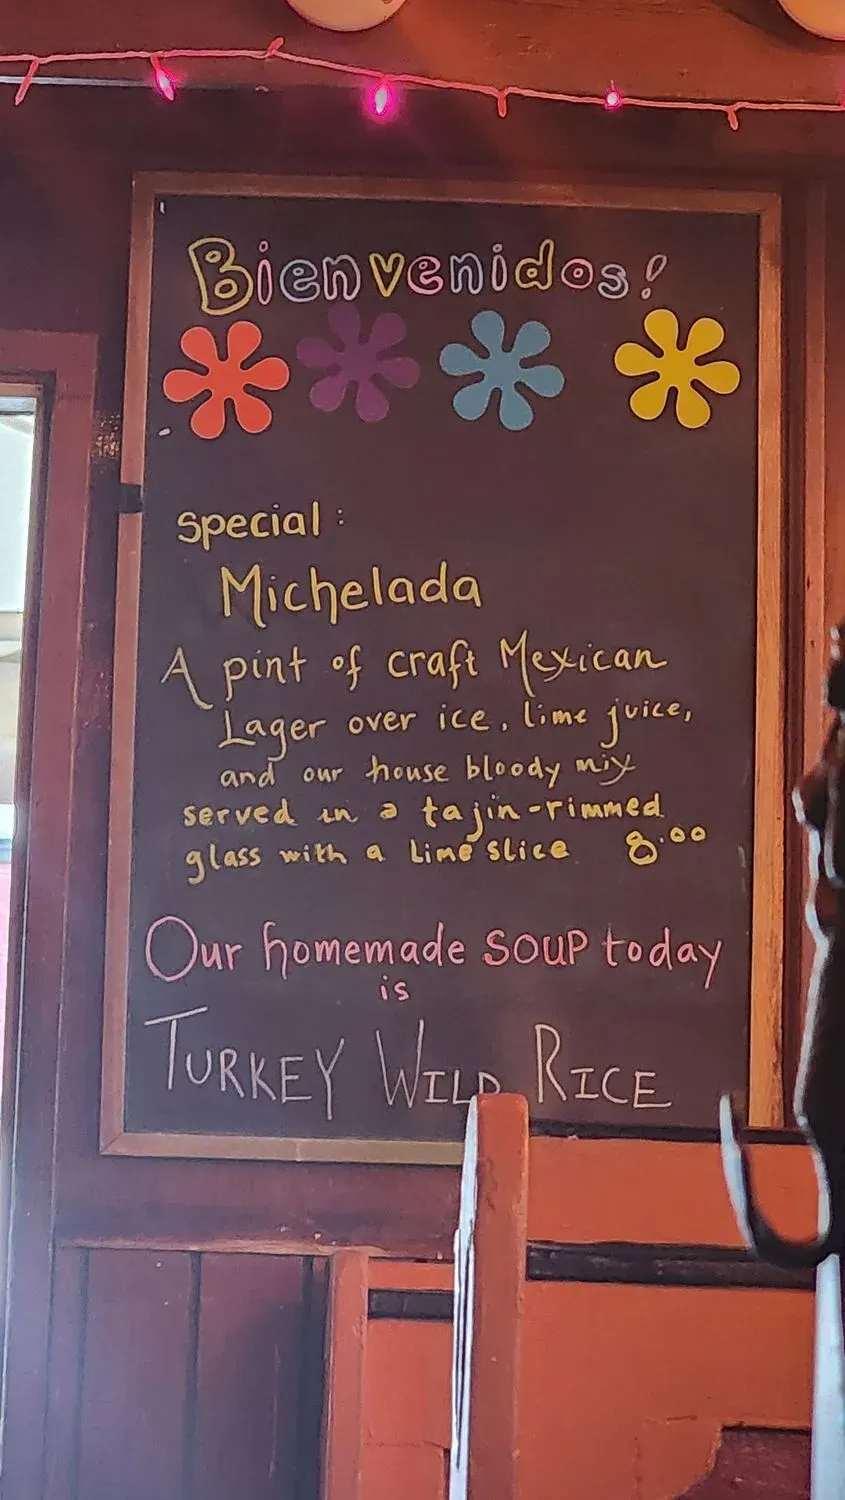 Bienvenidos!
special:
Michelada
A pint of craft Mexican
Lager over ice, lime juice,
and our house bloody mix
served in a tajin-rimmed
glass with a lime slice 8.00
Our homemade SOUP today
is
TURKEY WILD RICE